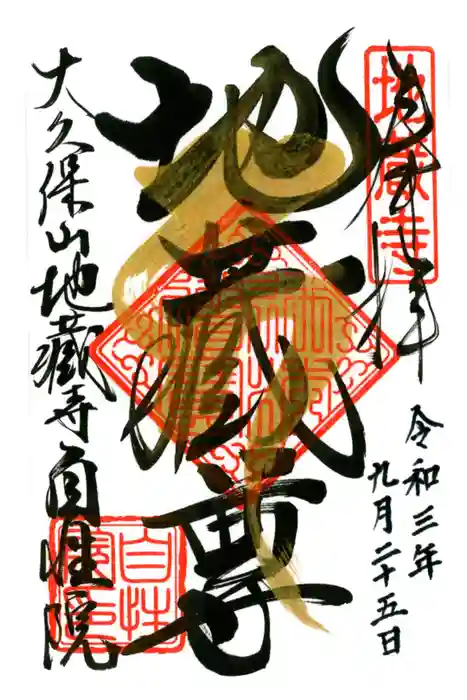 奉拝
地蔵寺
令和三年
九月二十五日
地蔵尊
大久保山地蔵寺自性院
自性